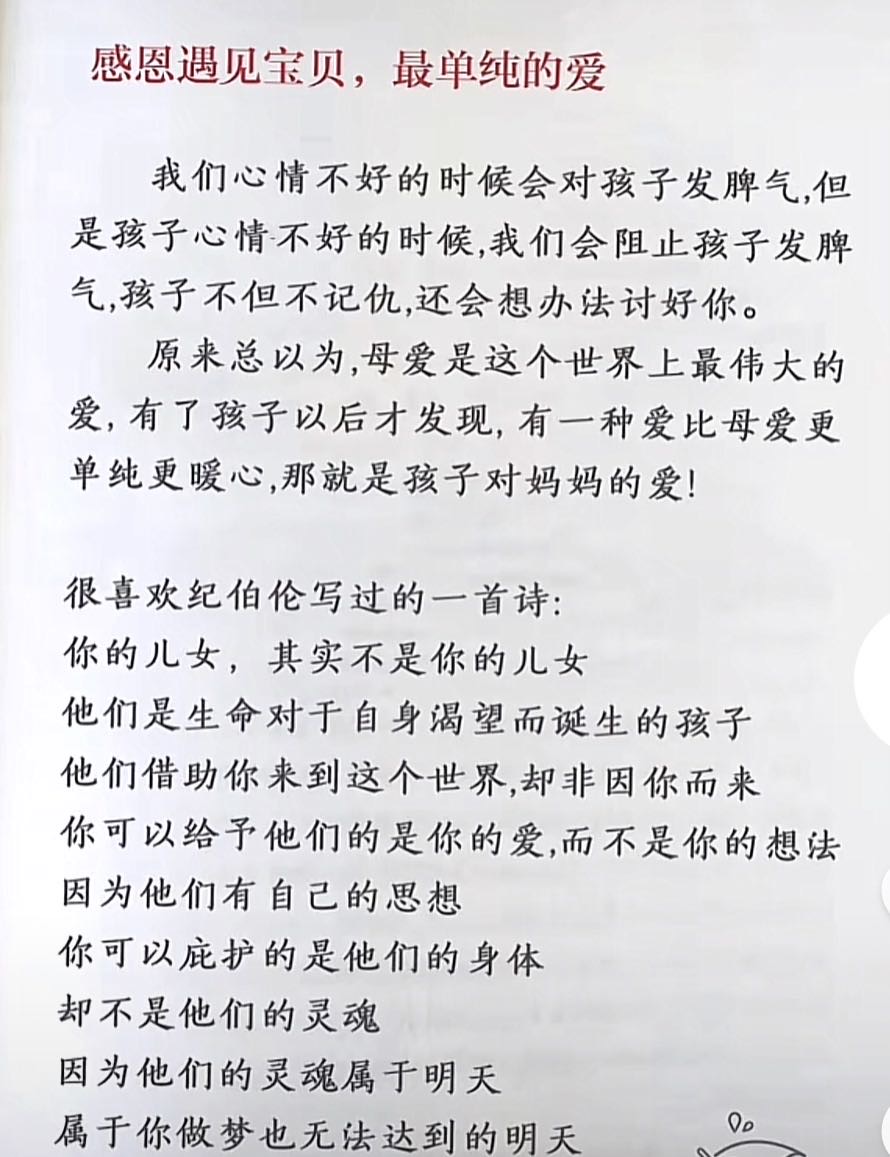 感恩遇见宝贝，最单纯的爱
我们心情不好的时候会对孩子发脾气,但
是孩子心情不好的时候,我们会阻止孩子发脾
气,孩子不但不记仇,还会想办法讨好你。
原来总以为,母爱是这个世界上最伟大的
爱,有了孩子以后才发现,有一种爱比母爱更
单纯更暖心,那就是孩子对妈妈的爱!
很喜欢纪伯伦写过的一首诗:
你的儿女，其实不是你的儿女
他们是生命对于自身渴望而诞生的孩子
他们借助你来到这个世界,却非因你而来
你可以给予他们的是你的爱,而不是你的想法
因为他们有自己的思想
你可以庇护的是他们的身体
却不是他们的灵魂
因为他们的灵魂属于明天
属于你做梦也无法达到的明天